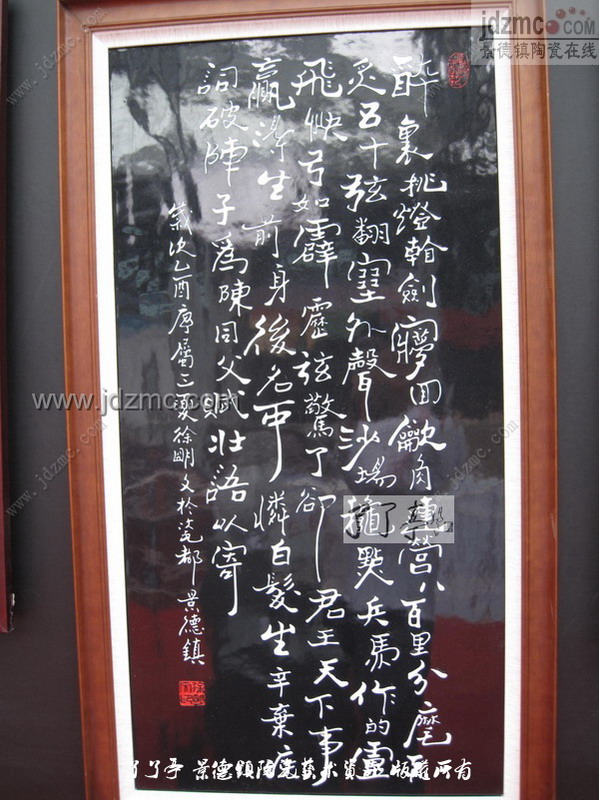 醉裏挑燈看劍夢回角連營八百里分麾下
炙五十弦翻塞外聲沙場秋點兵馬作的盧
飛快弓如霹靂弦驚了卻君王天下事
贏得生前身後名可憐白髮生辛棄疾
詞破陣子為陳同父賦壯語以寄
歲次乙酉序屬三夏徐明文於瓷都景德鎮
jdzmc.com
景德镇陶瓷在线
www.jdzmc.com
了了亭 景德镇陶瓷艺术资 版权所有